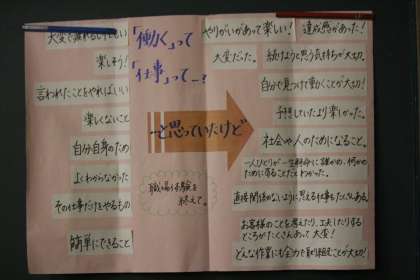 「働く」って
「仕事」って…?
大変で疲れるしけたい
楽しそう!
言われたことをやればいい
楽しくないこと
自分自身のため
よくわからなかった
その仕事だけをやるもの
簡単にできること
と思っていたけど
職場体験を
終えて。
やりがいがあって楽しい!
達成感があった!
大変だった。
続けようと思う気持ちが大切。
自分で見つけて動くことが大切!
予想していたより楽しかった。
社会や人のためになること。
一人ひとりが一生懸命に誰かの、何かの
ためになることだとわかった。
直接関係のないように思える仕事もたくさんある。
お客様のことを考えたり、工夫したりする
ところがたくさんあって大変!
どんな作業にも全力で取り組むことが大切!